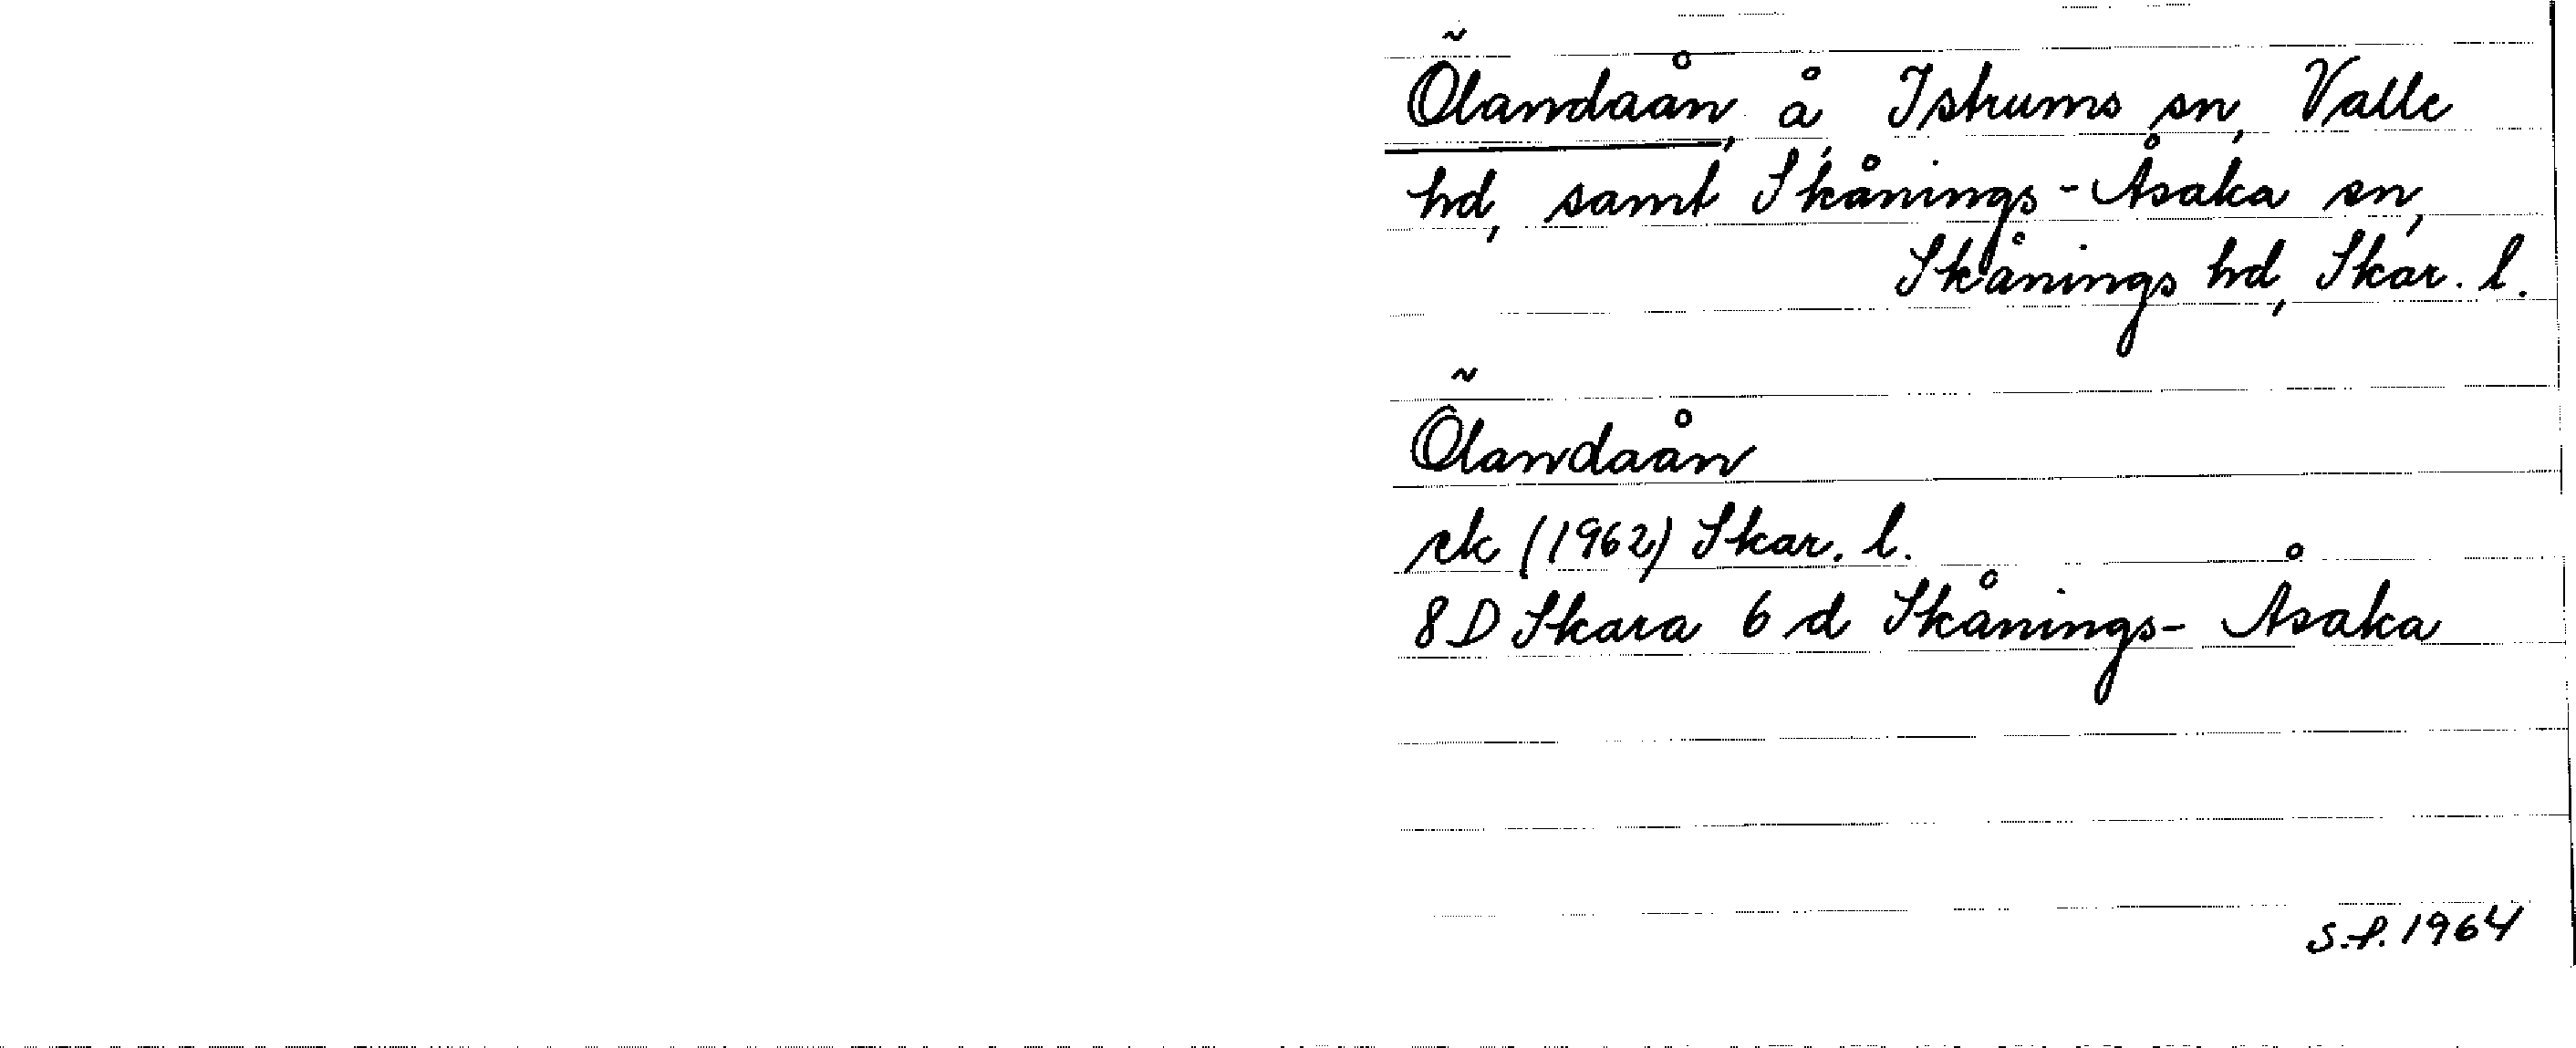 Ölandaån, å, Istrums sn, Valle
hd, samt Skånings-Åsaka sn,
Skånings hd, Skar. l.
Ölandaån
ek (1962) Skar. l.
8D Skara 6 d Skånings-Åsaka
S.P. 1964